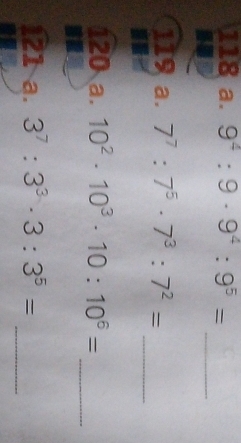 118 a. 9⁴ : 9 · 9⁴ : 9⁵ = ______
119 a. 7⁷ : 7⁵ · 7³ : 7² = ______
120 a. 10² · 10³ · 10 : 10⁶ = ______
121 a. 3⁷ : 3³ · 3 : 3⁵ = ______